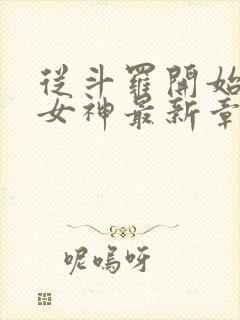 從斗羅開始
女神最新章
呢嗚呀